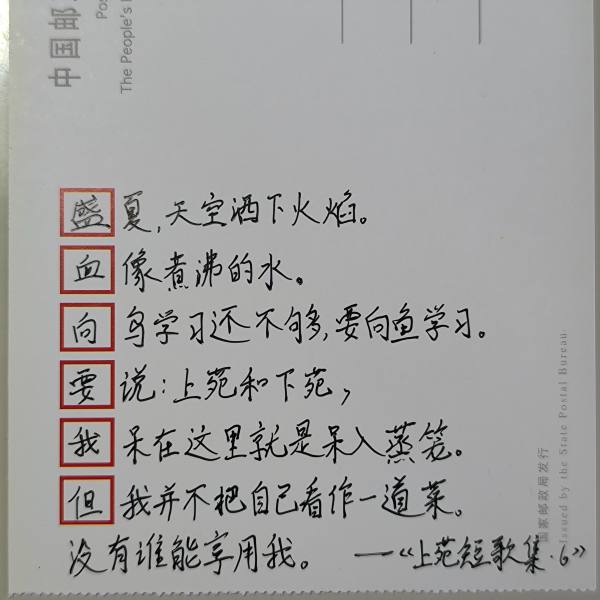 中国邮
Pos
The People's
盛夏,天空洒下火焰。
血像煮沸的水。
向鸟学习还不够,要向鱼学习。
要说:上苑和下苑,
我呆在这里就是呆入蒸笼。
但我并不把自己看作一道菜。
没有谁能享用我。 —《上苑短歌集·6》
国家邮政局发行
Issued by the State Postal Bureau.